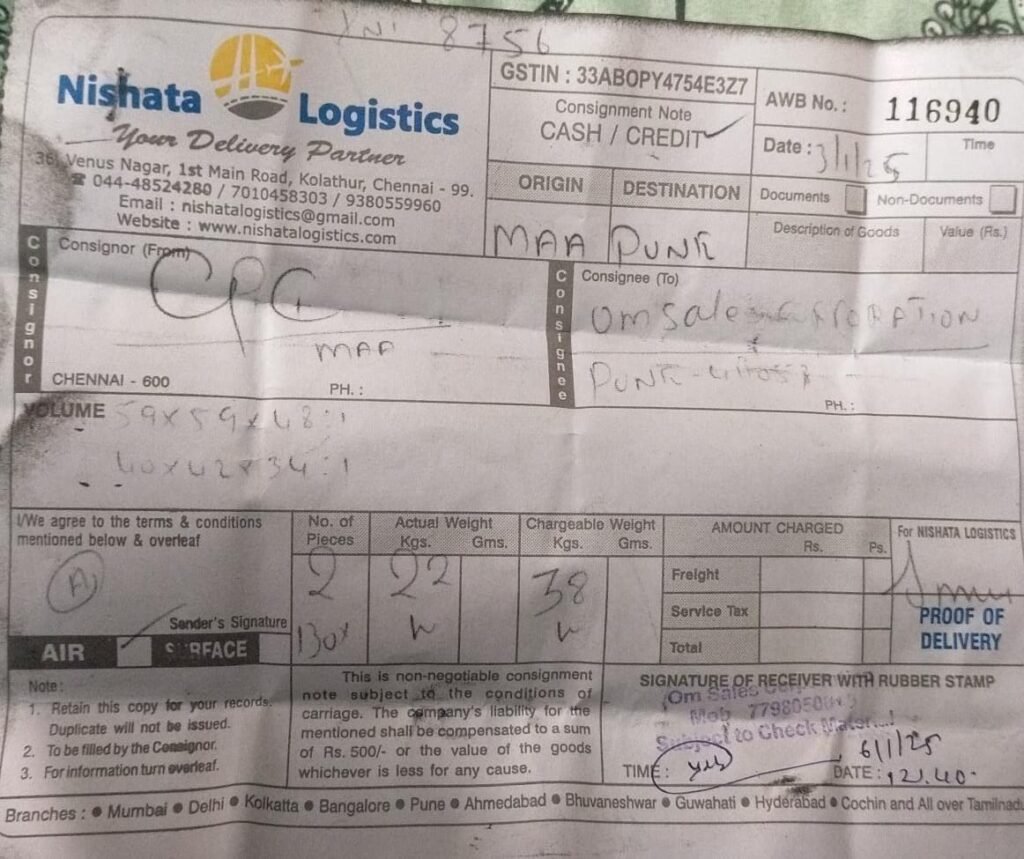 INI 8756
Nishata Logistics
Your Delivery Partner
36, Venus Nagar, 1st Main Road, Kolathur, Chennai - 99.
☎ 044-48524280 / 7010458303 / 9380559960
Email : nishatalogistics@gmail.com
Website : www.nishatalogistics.com
GSTIN : 33ABOPY4754E3Z7
Consignment Note
CASH / CREDIT
AWB No. : 116940
Date : 3/1/25
Time
ORIGIN
DESTINATION
MAA
PUNE
Documents
Non-Documents
Description of Goods
Value (Rs.)
Consignor
Consignor (From)
CPC
MAA
CHENNAI - 600
PH. :
Consignee
Consignee (To)
Om Sales CORPORATION
PUNE
PH. :
VOLUME
59x59x48:1
40x42x34:1
I/We agree to the terms & conditions
mentioned below & overleaf
A
Sender's Signature
AIR
SURFACE
No. of Pieces
2
Box
Actual Weight
Kgs. Gms.
22
Chargeable Weight
Kgs. Gms.
38
AMOUNT CHARGED
Rs. Ps.
Freight
Service Tax
Total
For NISHATA LOGISTICS
PROOF OF
DELIVERY
Note :
1. Retain this copy for your records.
Duplicate will not be issued.
2. To be filled by the Consignor.
3. For information turn overleaf.
This is non-negotiable consignment
note subject to the conditions of
carriage. The company's liability for the
mentioned shall be compensated to a sum
of Rs. 500/- or the value of the goods
whichever is less for any cause.
SIGNATURE OF RECEIVER WITH RUBBER STAMP
Om Sales
Mob
Subject to Check
6/1/25
TIME :
DATE : 12.40
Branches : ● Mumbai ● Delhi ● Kolkatta ● Bangalore ● Pune ● Ahmedabad ● Bhuvaneshwar ● Guwahati ● Hyderabad ● Cochin and All over Tamilnadu